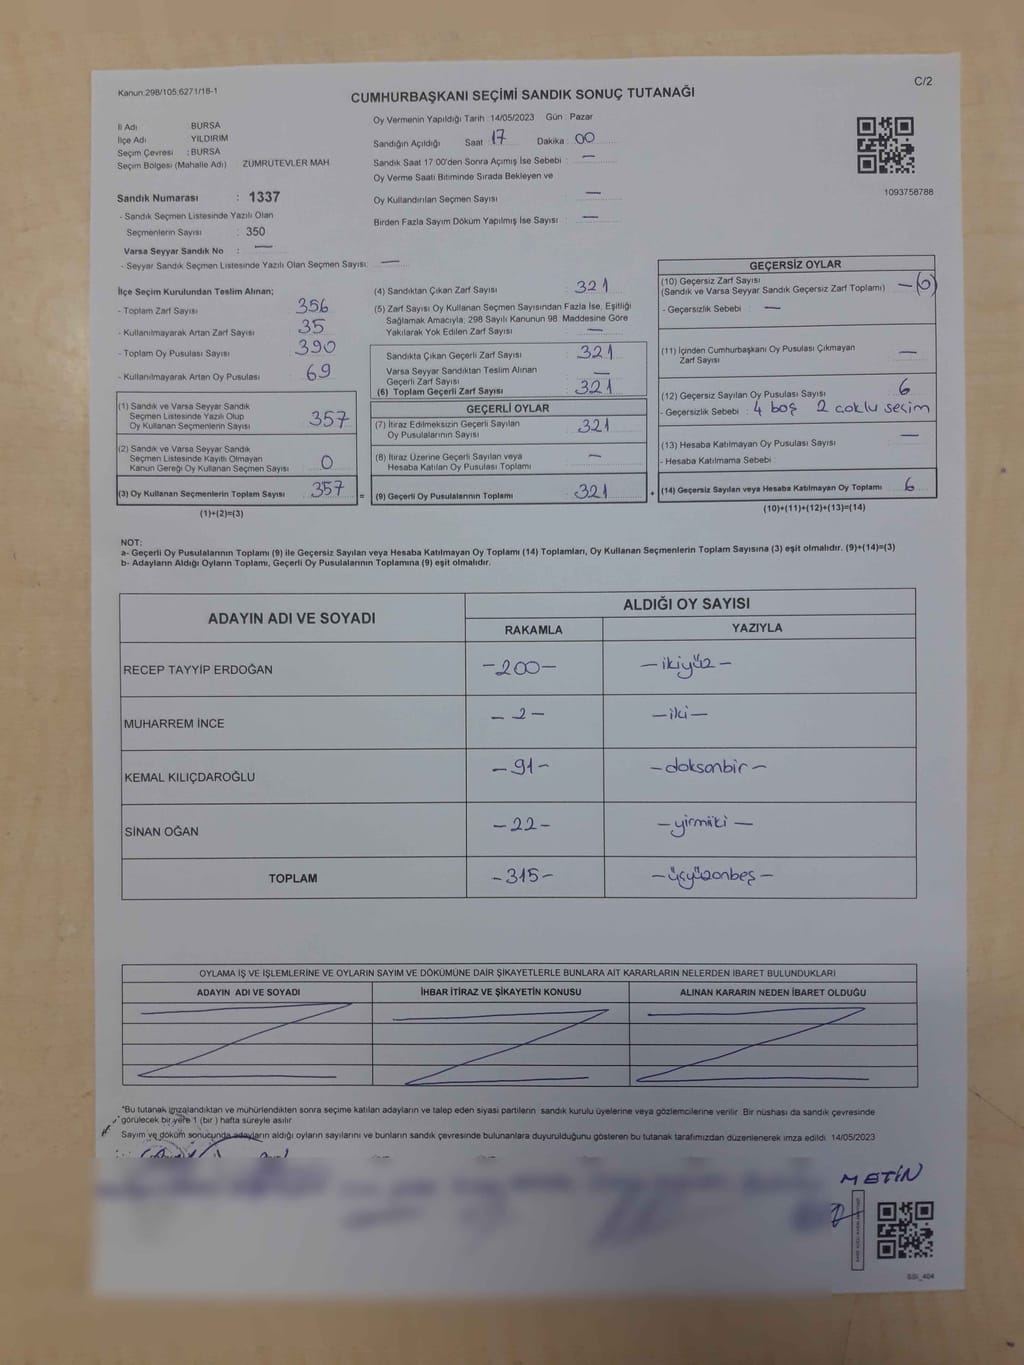 C/2
Kanun:298/105.6271/18-1
CUMHURBAŞKANI SEÇİMİ SANDIK SONUÇ TUTANAĞI
İl Adı BURSA
İlçe Adı YILDIRIM
Seçim Çevresi : BURSA
Seçim Bölgesi (Mahalle Adı) ZÜMRÜTEVLER MAH.
Oy Vermenin Yapıldığı Tarih :14/05/2023 Gün : Pazar
Sandığın Açıldığı Saat : 17 Dakika : 00
Sandık Saat 17:00'den Sonra Açımış İse Sebebi : —
Oy Verme Saati Bitiminde Sırada Bekleyen ve
Oy Kullandırılan Seçmen Sayısı : —
Birden Fazla Sayım Döküm Yapılmış İse Sayısı : —
1093758788
Sandık Numarası : 1337
- Sandık Seçmen Listesinde Yazılı Olan
Seçmenlerin Sayısı : 350
Varsa Seyyar Sandık No : —
- Seyyar Sandık Seçmen Listesinde Yazılı Olan Seçmen Sayısı: —
İlçe Seçim Kurulundan Teslim Alınan;
- Toplam Zarf Sayısı : 356
- Kullanılmayarak Artan Zarf Sayısı : 35
- Toplam Oy Pusulası Sayısı : 390
- Kullanılmayarak Artan Oy Pusulası : 69
(1) Sandık ve Varsa Seyyar Sandık
Seçmen Listesinde Yazılı Olup
Oy Kullanan Seçmenlerin Sayısı 357
(2) Sandık ve Varsa Seyyar Sandık
Seçmen Listesinde Kayıtlı Olmayan
Kanun Gereği Oy Kullanan Seçmen Sayısı 0
(3) Oy Kullanan Seçmenlerin Toplam Sayısı 357 =
(1)+(2)=(3)
(4) Sandıktan Çıkan Zarf Sayısı : 321
(5) Zarf Sayısı Oy Kullanan Seçmen Sayısından Fazla İse, Eşitliği
Sağlamak Amacıyla, 298 Sayılı Kanunun 98. Maddesine Göre
Yakılarak Yok Edilen Zarf Sayısı : —
Sandıkta Çıkan Geçerli Zarf Sayısı : 321
Varsa Seyyar Sandıktan Teslim Alınan
Geçerli Zarf Sayısı : —
(6) Toplam Geçerli Zarf Sayısı : 321
GEÇERLİ OYLAR
(7) İtiraz Edilmeksizin Geçerli Sayılan
Oy Pusulalarının Sayısı : 321
(8) İtiraz Üzerine Geçerli Sayılan veya
Hesaba Katılan Oy Pusulası Toplamı : —
(9) Geçerli Oy Pusulalarının Toplamı : 321 +
GEÇERSİZ OYLAR
(10) Geçersiz Zarf Sayısı
(Sandık ve Varsa Seyyar Sandık Geçersiz Zarf Toplamı) : — (0)
- Geçersizlik Sebebi : —
(11) İçinden Cumhurbaşkanı Oy Pusulası Çıkmayan
Zarf Sayısı : —
(12) Geçersiz Sayılan Oy Pusulası Sayısı : 6
- Geçersizlik Sebebi : 4 boş 2 coklu seçim
(13) Hesaba Katılmayan Oy Pusulası Sayısı : —
- Hesaba Katılmama Sebebi :
(14) Geçersiz Sayılan veya Hesaba Katılmayan Oy Toplamı : 6
(10)+(11)+(12)+(13)=(14)
NOT:
a- Geçerli Oy Pusulalarının Toplamı (9) ile Geçersiz Sayılan veya Hesaba Katılmayan Oy Toplamı (14) Toplamları, Oy Kullanan Seçmenlerin Toplam Sayısına (3) eşit olmalıdır. (9)+(14)=(3)
b- Adayların Aldığı Oyların Toplamı, Geçerli Oy Pusulalarının Toplamına (9) eşit olmalıdır.
ADAYIN ADI VE SOYADI ALDIĞI OY SAYISI
RAKAMLA YAZIYLA
RECEP TAYYİP ERDOĞAN –200– –ikiyüz–
MUHARREM İNCE –2– –iki–
KEMAL KILIÇDAROĞLU –91– –doksanbir–
SİNAN OĞAN –22– –yirmiiki–
TOPLAM –315– –üçyüzonbeş–
OYLAMA İŞ VE İŞLEMLERİNE VE OYLARIN SAYIM VE DÖKÜMÜNE DAİR ŞİKAYETLERLE BUNLARA AİT KARARLARIN NELERDEN İBARET BULUNDUKLARI
ADAYIN ADI VE SOYADI İHBAR İTİRAZ VE ŞİKAYETİN KONUSU ALINAN KARARIN NEDEN İBARET OLDUĞU
*Bu tutanak imzalandıktan ve mühürlendikten sonra seçime katılan adayların ve talep eden siyasi partilerin sandık kurulu üyelerine veya gözlemcilerine verilir. Bir nüshası da sandık çevresinde
görülecek bir yere 1 (bir ) hafta süreyle asılır
Sayım ve döküm sonucunda adayların aldığı oyların sayılarını ve bunların sandık çevresinde bulunanlara duyurulduğunu gösteren bu tutanak tarafımızdan düzenlenerek imza edildi. 14/05/2023
METİN
SSI_404